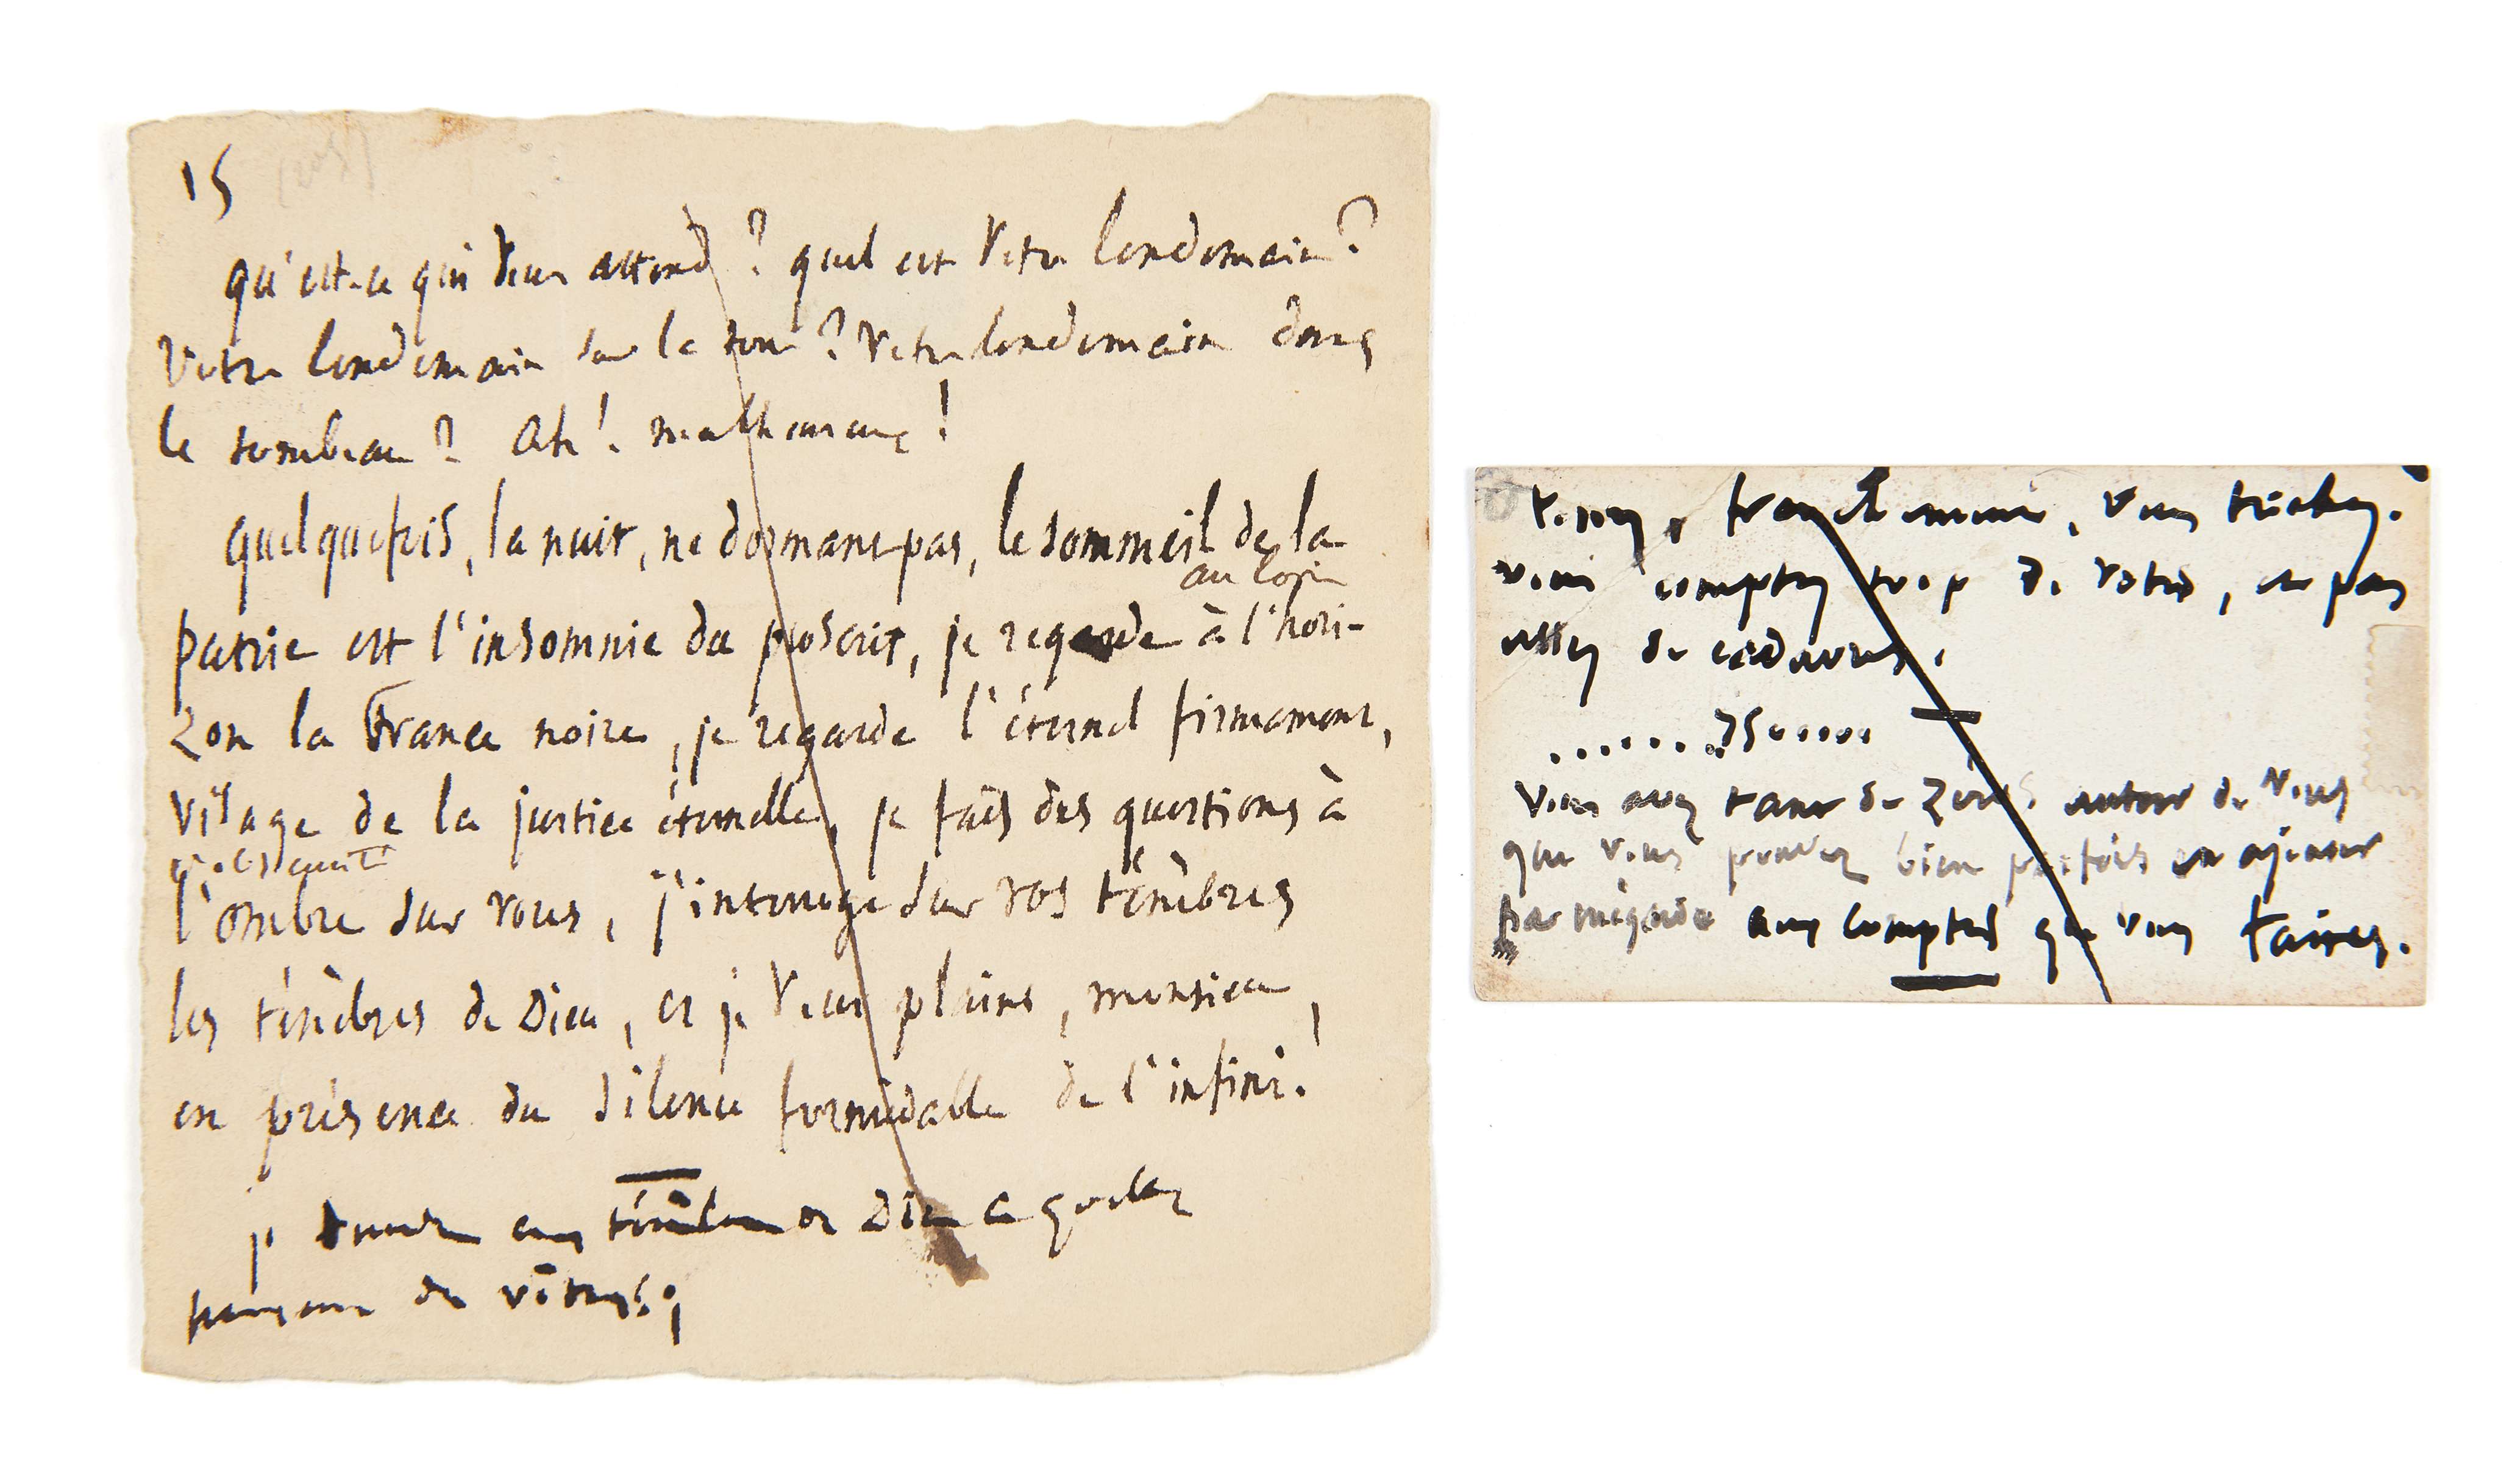 15
qu'est-ce qui vous attend ? quel est votre lendemain ?
Votre lendemain sur la terre ? Votre lendemain dans
le tombeau ? Ah ! malheureux !
quelquefois, la nuit, ne dormant pas, le sommeil de la
patrie est l'insomnie du proscrit, je regarde à l'hori-
au loin
zon la France noire, je regarde l'éternel firmament,
visage de la justice éternelle, je fais des questions à
l'ombre sur vous, j'interroge sur vos ténèbres
les ténèbres de Dieu, et je vous plains, monsieur,
en présence du silence formidable de l'infini.
je aux ténèbres de Dieu ce
des vôtres ;
Tenez, franchement, vous trichez.
vous comptez trop de votes, et pas
assez de cadavres.
......75......
Vous avez tant de zéros autour de vous
que vous pouvez bien parfois en ajouter
par mégarde aux comptes que vous faites.